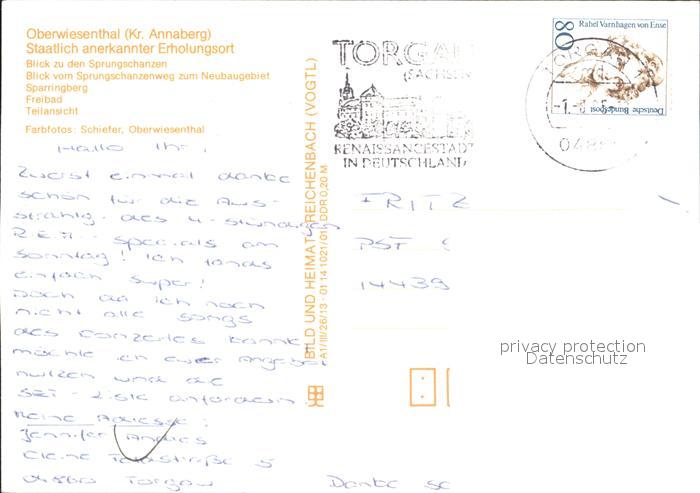 Oberwiesenthal (Kr. Annaberg)
Staatlich anerkannter Erholungsort
Blick zu den Sprungschanzen
Blick vom Sprungschanzenweg zum Neubaugebiet
Sparringberg
Freibad
Teilansicht
Farbfotos: Schiefer, Oberwiesenthal
Hallo Ihr,
Zuerst einmal danke
schön für die Aus-
strahlg. des 4-stündigen
R.E.M.-Specials am
Sonntag! Ich fands
einfach super!
Doch da ich noch
nicht alle Songs
des Conzertes kannte
möchte ich euer Angebot
nutzen und die
Set-Liste anfordern.
Meine Adresse:
Jennifer
5
04860 Torgau
Danke sc
BILD UND HEIMAT REICHENBACH (VOGTL)
A1/III/26/13 01 14 1021/01 DDR 0,20 M
TORGAU
(SACHSEN
RENAISSANCESTADT
IN DEUTSCHLAND
80
Rahel Varnhagen von Ense
Deutsche Bundespost
TORGAU
048
FRITZ
PSF
14439
privacy protection
Datenschutz